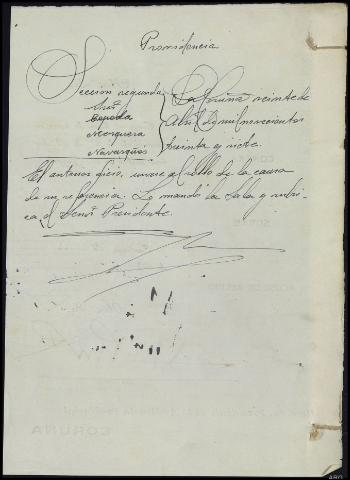 Providencia
Sección segunda
Cepeda
Mosquera
Navarqués
La Coruña veinte de
Abril de mil novecientos
treinta y siete.
El anterior oficio, unase al rollo de la causa
de su referencia. Lo mandó la Sala y rubri-
ca el Señor Presidente.
CORUÑA